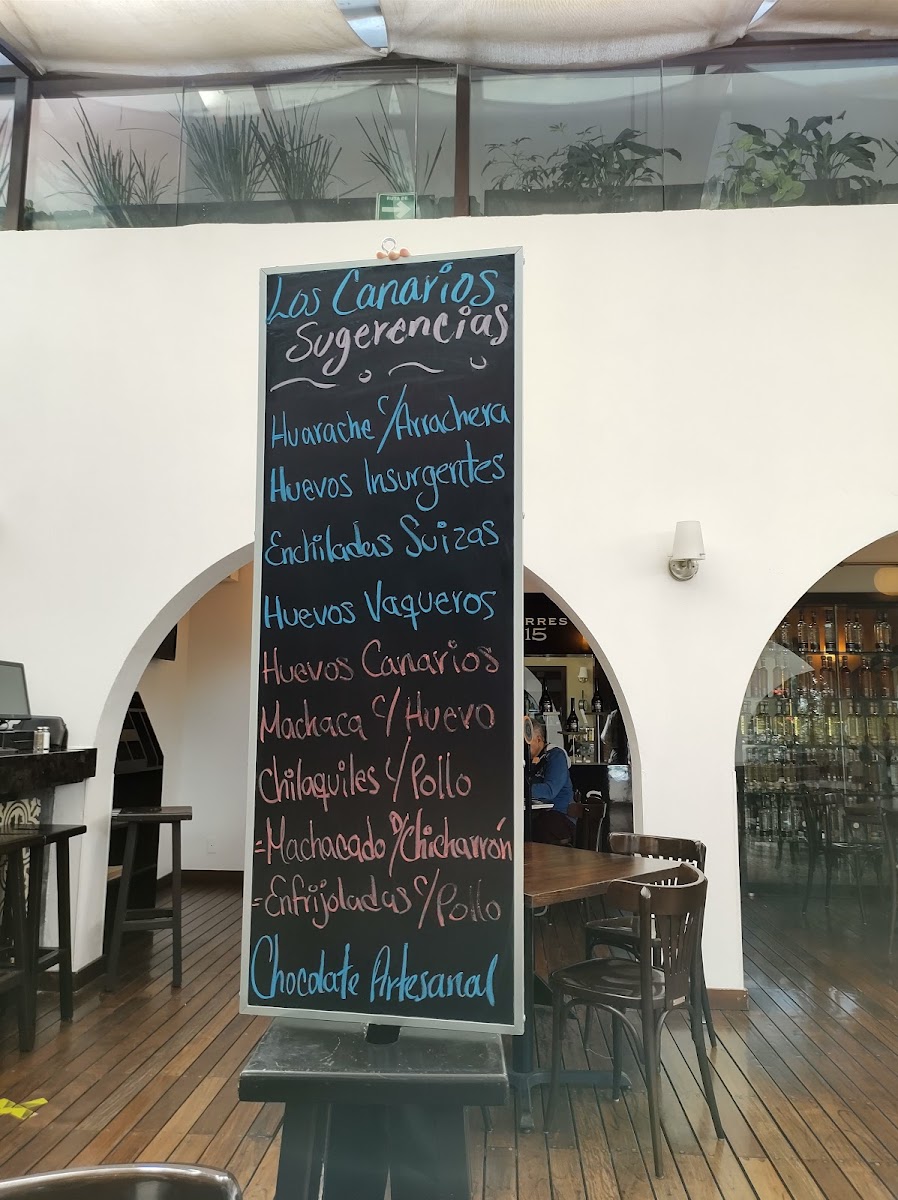 Los Canarios
Sugerencias
Huarache c/Arrachera
Huevos Insurgentes
Enchiladas Suizas
Huevos Vaqueros
Huevos Canarios
Machaca c/Huevo
Chilaquiles c/Pollo
=Machacado D/Chicharrón
=Enfrijoladas c/Pollo
Chocolate Artesanal
RRES
15